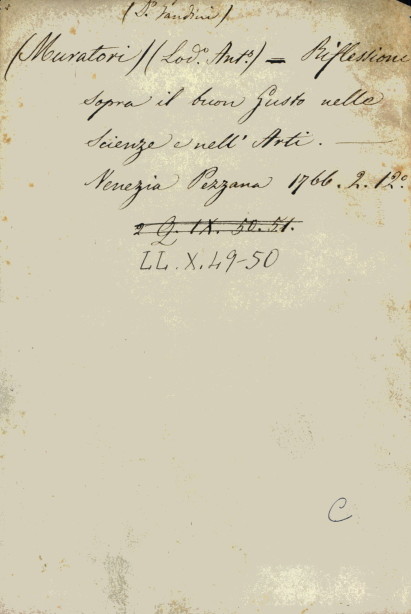 (Muratori) (Lod.° Ant.°) = Riflessioni
sopra il buon Gusto nelle
Scienze e nell' Arti. —
Venezia Pezzana 1766. 2. 12.°
2 Q. IX. 50. 51.
LL. X. 49-50
C